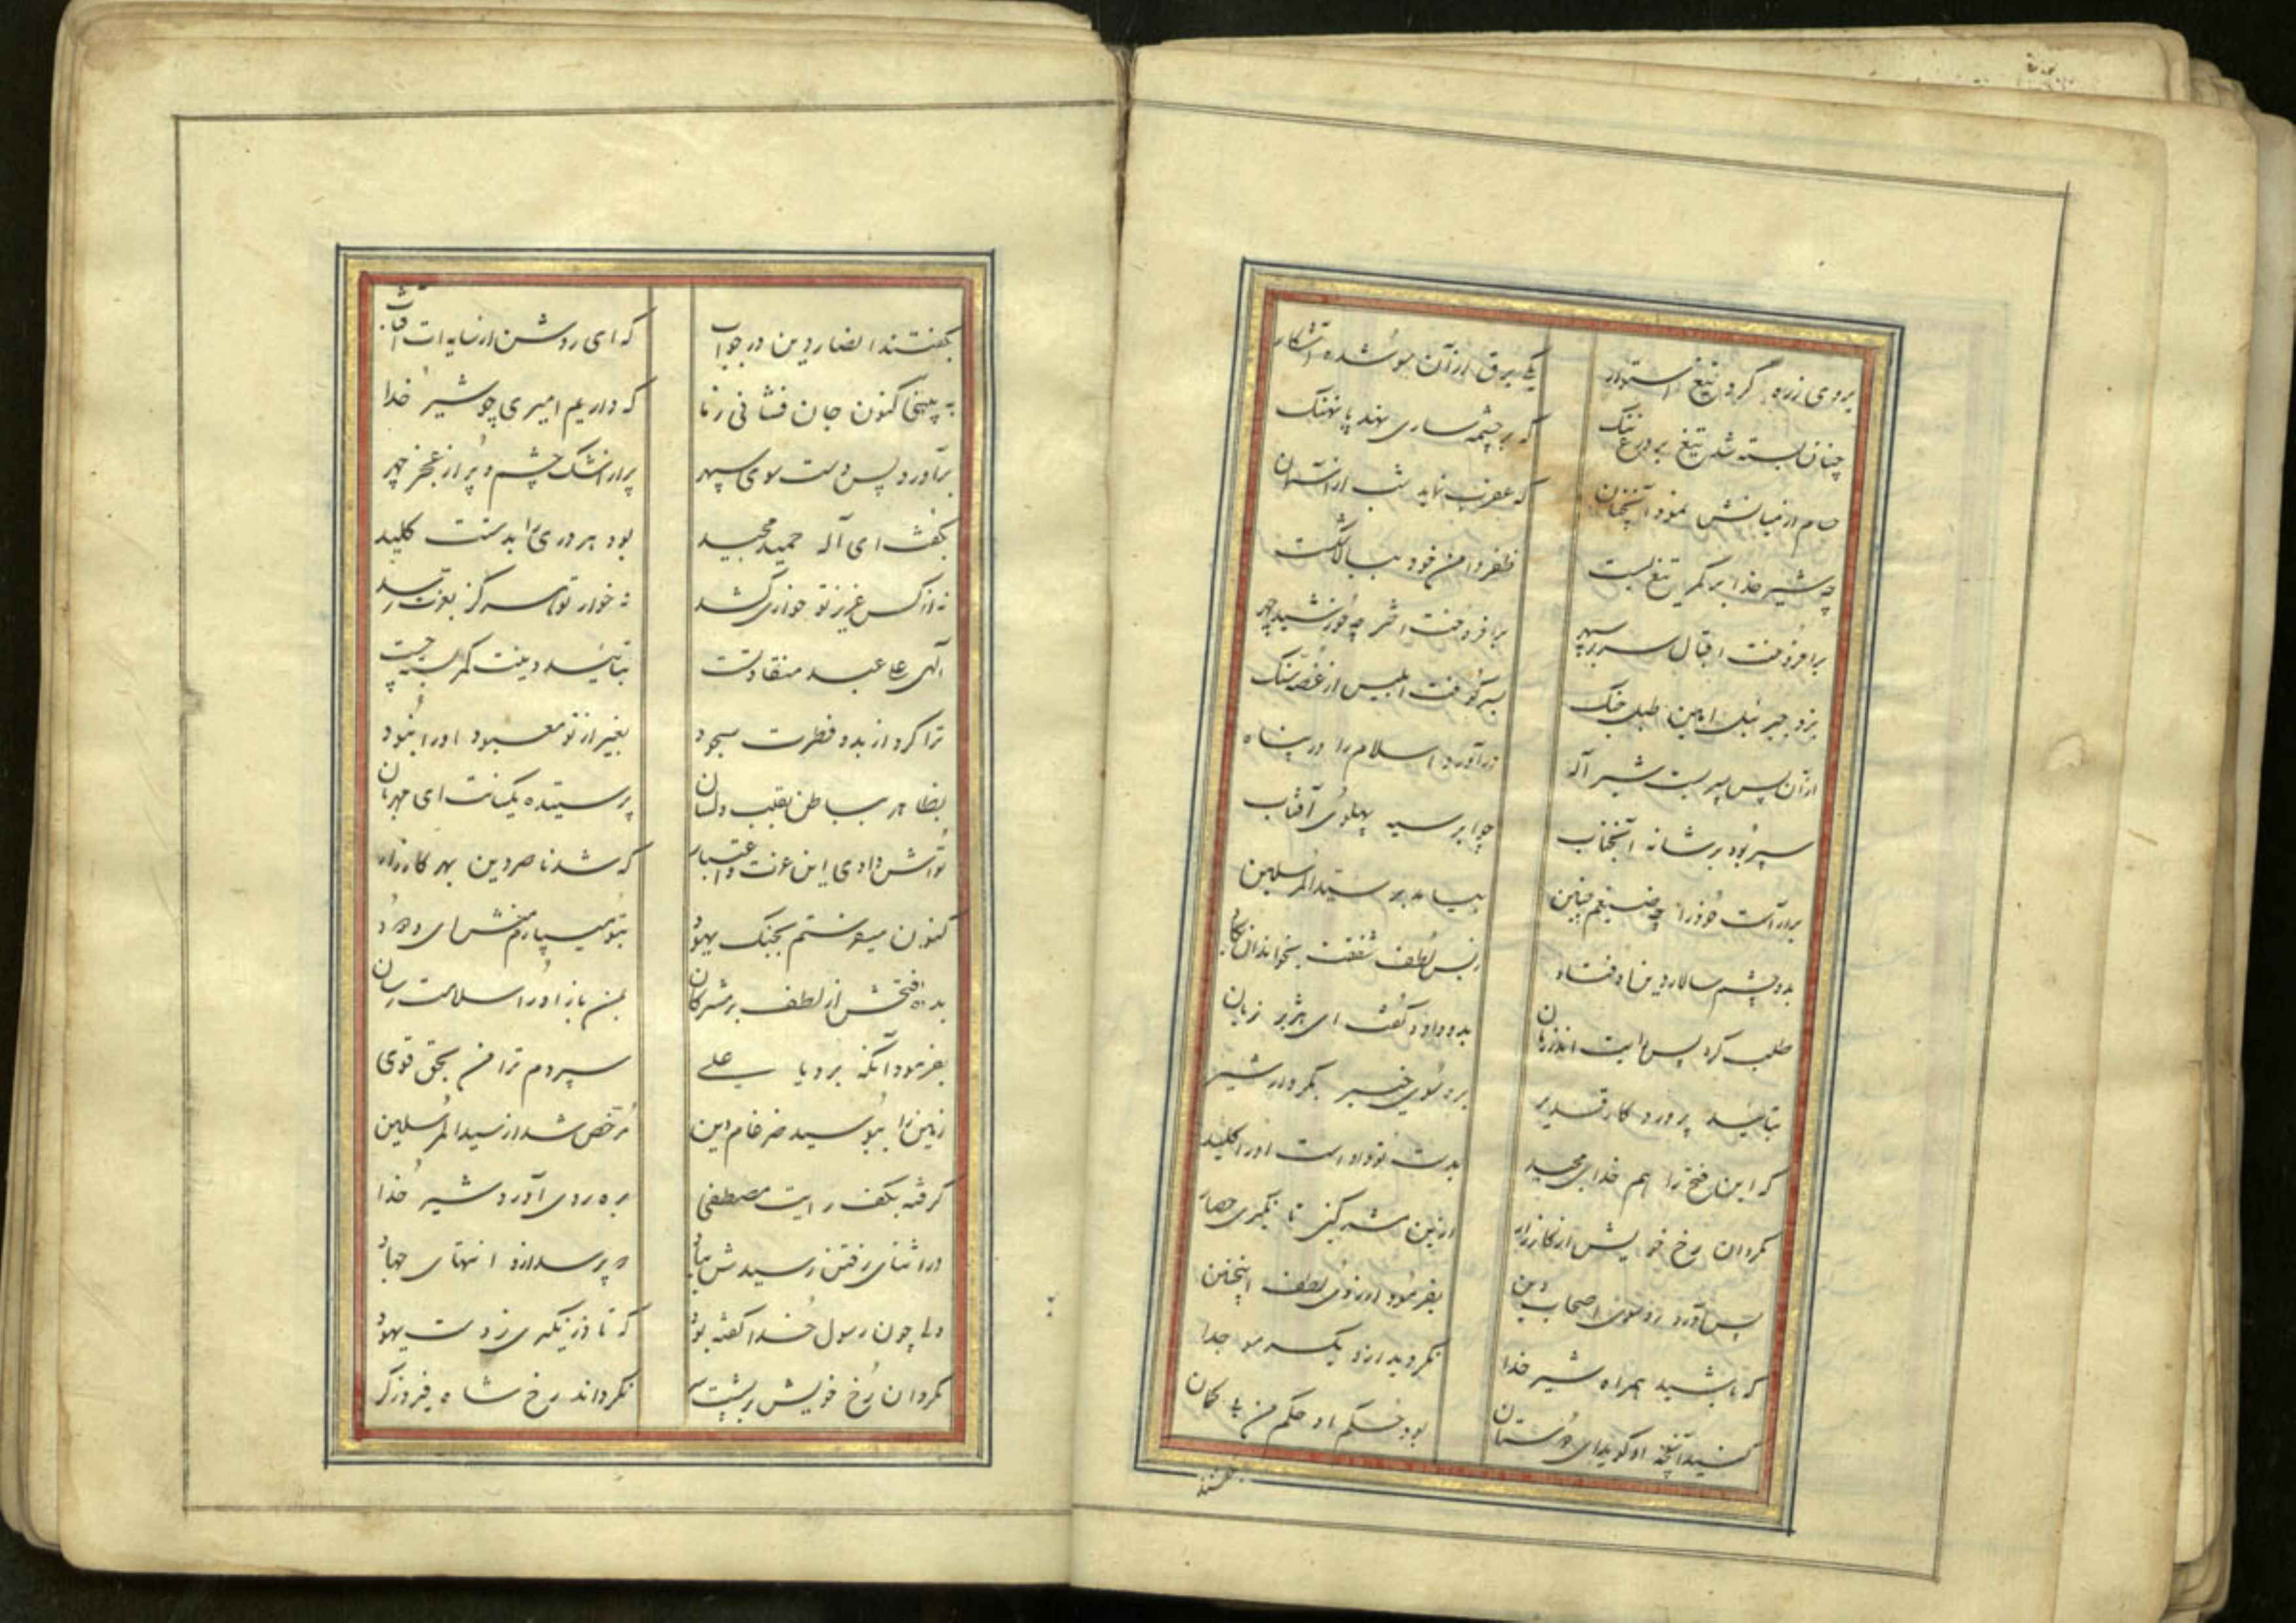 بروی زره کرد تیغ استوار یکی برق از آن سو شده آشکار
چنان بسته شد تیغ بر درع تنک که بر چشمه ساری نهد پا نهنک
حسام از میانش نمود آنچنان که عقرب نماید شب از آسمان
چه شیر خدا بر کمر تیغ بست ظفر دامن خود ببالا شکست
برافروخت اقبال سر بر سپهر برافروخت اختر چه خورشید چهر
بزد جبرئیل امین طبل جنک بسر کوفت ابلیس از غصه سنک
از آن پس سپر بست شیر آله درآورد اسلام را در پناه
سپر بود بر شانه آنجناب چو ابر سیه پهلوی آفتاب
بیاراست خود را چه ضیغم چنین بیامد بر سیدالمرسلین
بدو چشم سالار دین اوفتاد ز بس لطف شفقت بخواند ان یکاد
طلب کرد پس رایت اندر زمان بدو داد و گفت ای هژبر زیان
بتائید پروردکار قدیر برو سوی خیبر بکردار شیر
که این فتح ترا هم خدای مجید بدست تو داده است او را کلید
مکردان رخ خویش از کارزار ازین ره بمکن تا نکیری حصار
پس آورد رو سوی اصحاب دین بفرمود از روی لطف اینچنین
که باشید همراه شیر خدا نکردید از او یکسر مو جدا
کنید آنچه او کوید ای دوستان بود حکم او حکم من بی کمان
بکفتند
بکفتند انصار دین در جواب که ای روشن از سایه ات آفتاب
به پیچیم کنون جان فشانی ز ما که داریم امیری چو شیر خدا
برآورد پس دست سوی سپهر پر از اشک چشم و پر از عجز چهر
بکفت ای آله حمید مجید بود هر دری را بدستت کلید
نه از کس عزیز تو خواری کشد نه خوار تو هرکز بعزت رسد
آلهی علی عبد منقاد تست بتائید دینت کمر بسته چست
ترا کرد از بدو فطرت سجود بغیر از تو معبود او را نبود
بظاهر بباطن بقلب و لسان پرستیده یکتات ای مهربان
تواش دادی این عزت و اعتبار که شد ناصر دین بهر کارزار
کنون میفرستم بجنک یهود بتو میسپارمش ای ودود
بده فتحش از لطف بر مشرکان بمن باز او را سلامت رسان
بفرمود آنکه برو یا علی سپردم ترا من بحق قوی
زمین را ببوسید ضرغام دین مرخص شد از سیدالمرسلین
کرفته بکف رایت مصطفی بره روی آورد شیر خدا
در اثنای رفتن رسیدش بیاد که پرسد از او انتهای جهاد
ولی چون رسول خدا کفته بود که تا در نکیری ز دست یهود
مکردان رخ خویش بر پشت سر نکرداند رخ شاه فیروزکر